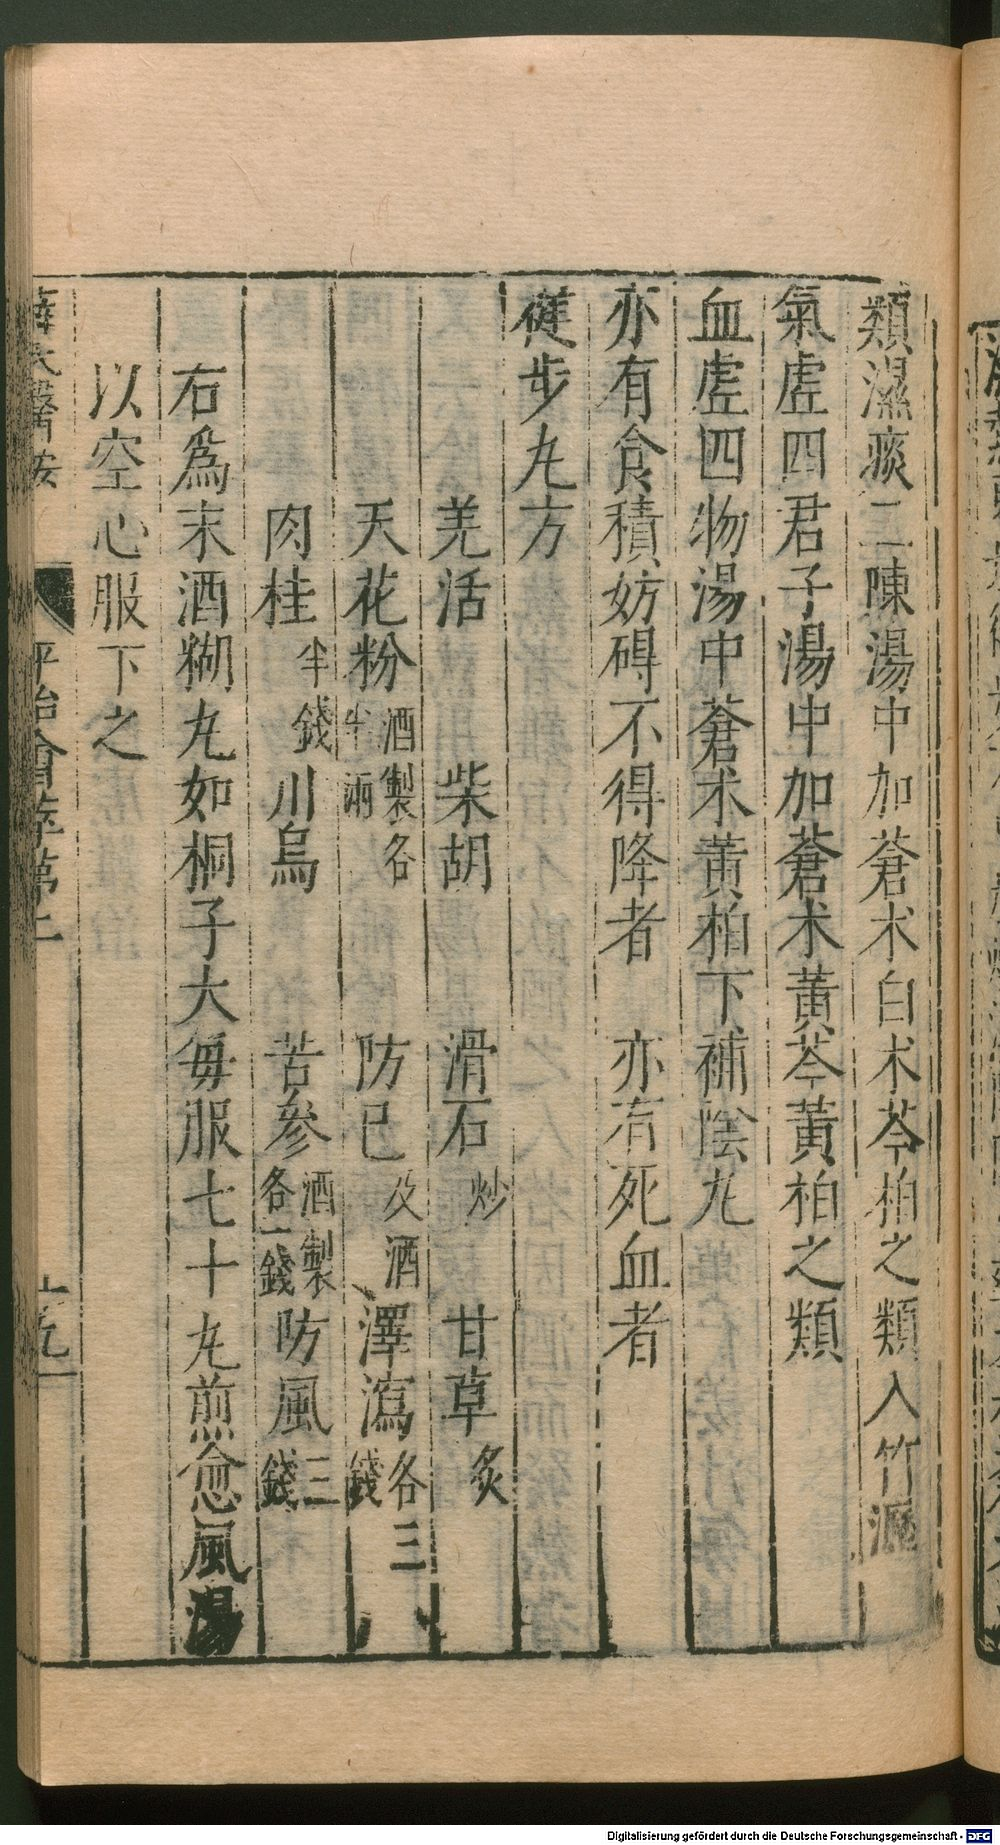 類濕痰二陳湯中加蒼术白术芩柏之類入竹瀝
氣虛四君子湯中加蒼术黃芩黃柏之類
血虛四物湯中蒼术黃柏下補陰丸
亦有食積妨碍不得降者　亦有死血者
健步丸方
羌活　柴胡　滑石炒　甘草炙
天花粉酒製各半兩　防已及酒　澤瀉各三錢
肉桂半錢　川烏　苦參酒製各一錢　防風三錢
右爲末酒糊丸如桐子大每服七十丸煎愈風湯
以空心服下之
薛氏醫按　平治會萃第二
Digitalisierung gefördert durch die Deutsche Forschungsgemeinschaft - DFG